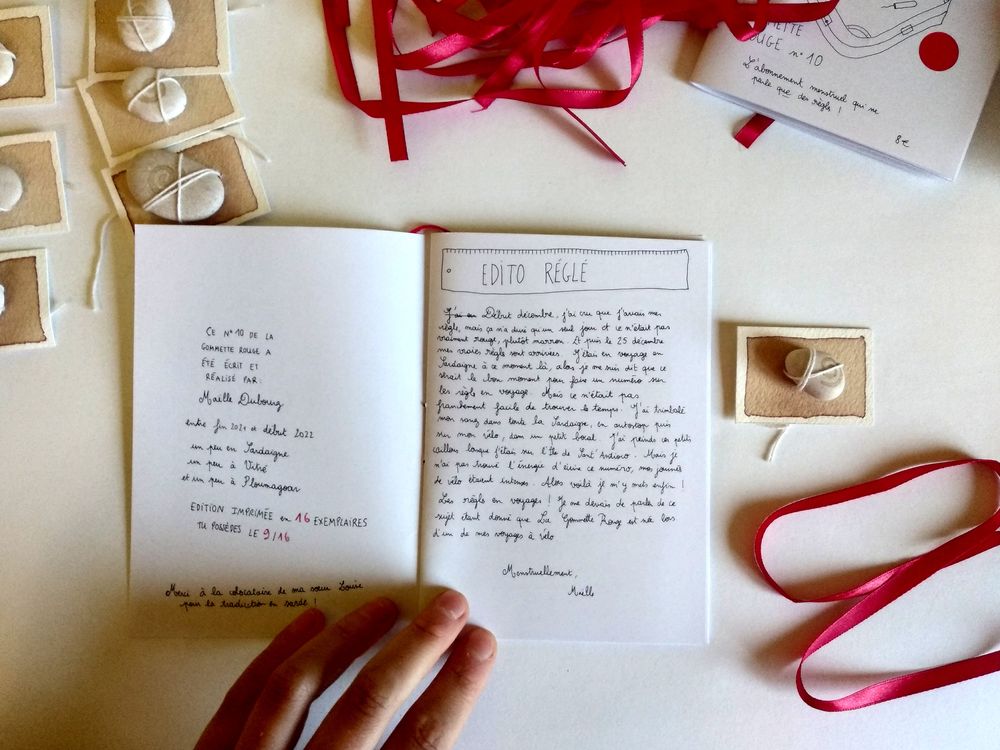 GOMMETTE
ROUGE n°10
L'abonnement menstruel qui ne
parle que des règles !
8€
CE N°10 DE LA
GOMMETTE ROUGE A
ÉTÉ ÉCRIT ET
RÉALISÉ PAR:
Maëlle Dubourg
entre fin 2021 et début 2022
un peu en Sardaigne
un peu à Vitré
et un peu à Ploumagoar
EDITION IMPRIMÉE en 16 EXEMPLAIRES
TU POSSÈDES LE 9/16
Merci à la colocataire de ma sœur Louise
pour la traduction en sarde !
EDITO RÉGLÉ
J'ai eu Début décembre, j'ai cru que j'avais mes
règle, mais ça n'a duré qu'un seul jour et ce n'était pas
vraiment rouge, plutôt marron. Et puis le 25 décembre
mes vraies règles sont arrivées. J'étais en voyage en
Sardaigne à ce moment là, alors je me suis dit que ce
serait le bon moment pour faire un numéro sur
les règles en voyage. Mais ce n'était pas
franchement facile de trouver le temps. J'ai trimbalé
mon sang dans toute la Sardaigne, en autostop puis
sur mon vélo, dans un petit bocal. J'ai peinds ces petits
cailloux lorsque j'étais sur l'île de Sant'Antioco. Mais je
n'ai pas trouvé l'énergie d'écrire ce numéro, mes journées
de vélo étaient intenses. Alors voilà je m'y mets enfin !
Les règles en voyages ! Je me devais de parler de ce
sujet étant donné que La Gommette Rouge est née lors
d'un de mes voyages à vélo
Menstruellement,
Maëlle